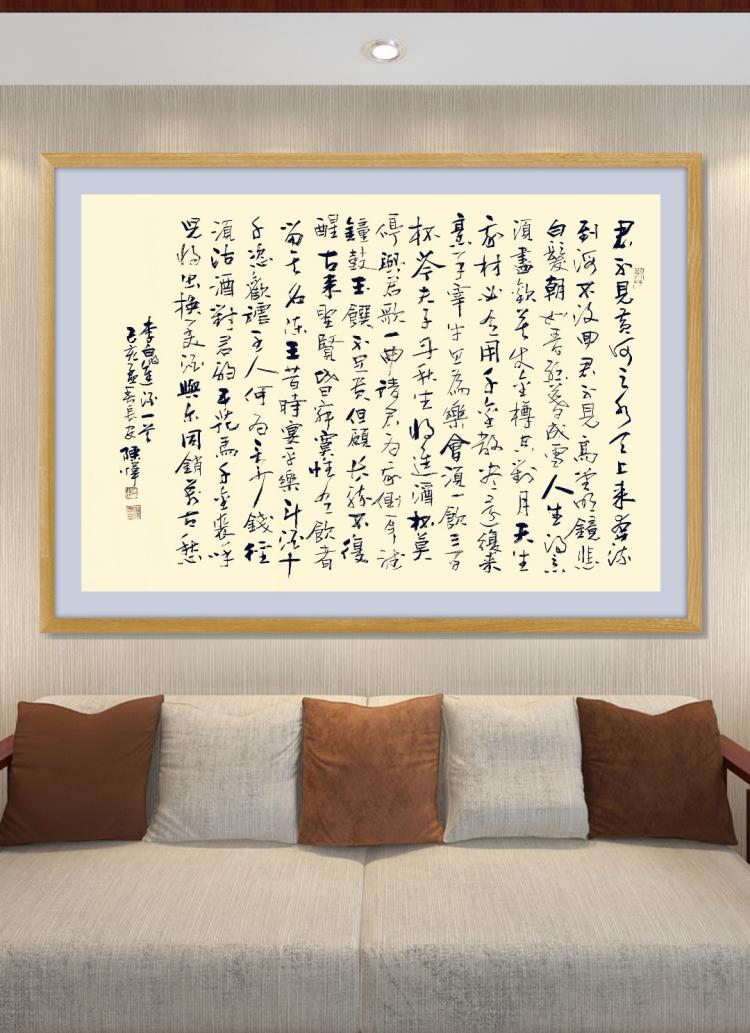 君不見黃河之水天上來奔流
到海不復回君不見高堂明鏡悲
白髮朝如青絲暮成雪人生得意
須盡歡莫使金樽空對月天生
我材必有用千金散盡還復來
烹羊宰牛且為樂會須一飲三百
杯岑夫子丹丘生將進酒杯莫
停與君歌一曲請君為我側耳聽
鐘鼓玉饌不足貴但願長醉不復
醒古來聖賢皆寂寞惟有飲者
留其名陳王昔時宴平樂斗酒十
千恣歡謔主人何為言少錢徑
須沽酒對君酌五花馬千金裘呼
兒將出換美酒與爾同銷萬古愁
李白進酒一首
己亥孟春長安陳